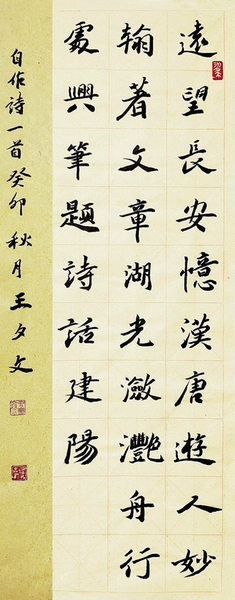 遠望長安憶漢唐遊人妙
翰著文章湖光瀲灩舟行
處興筆題詩話建陽
自作詩一首癸卯秋月王夕文